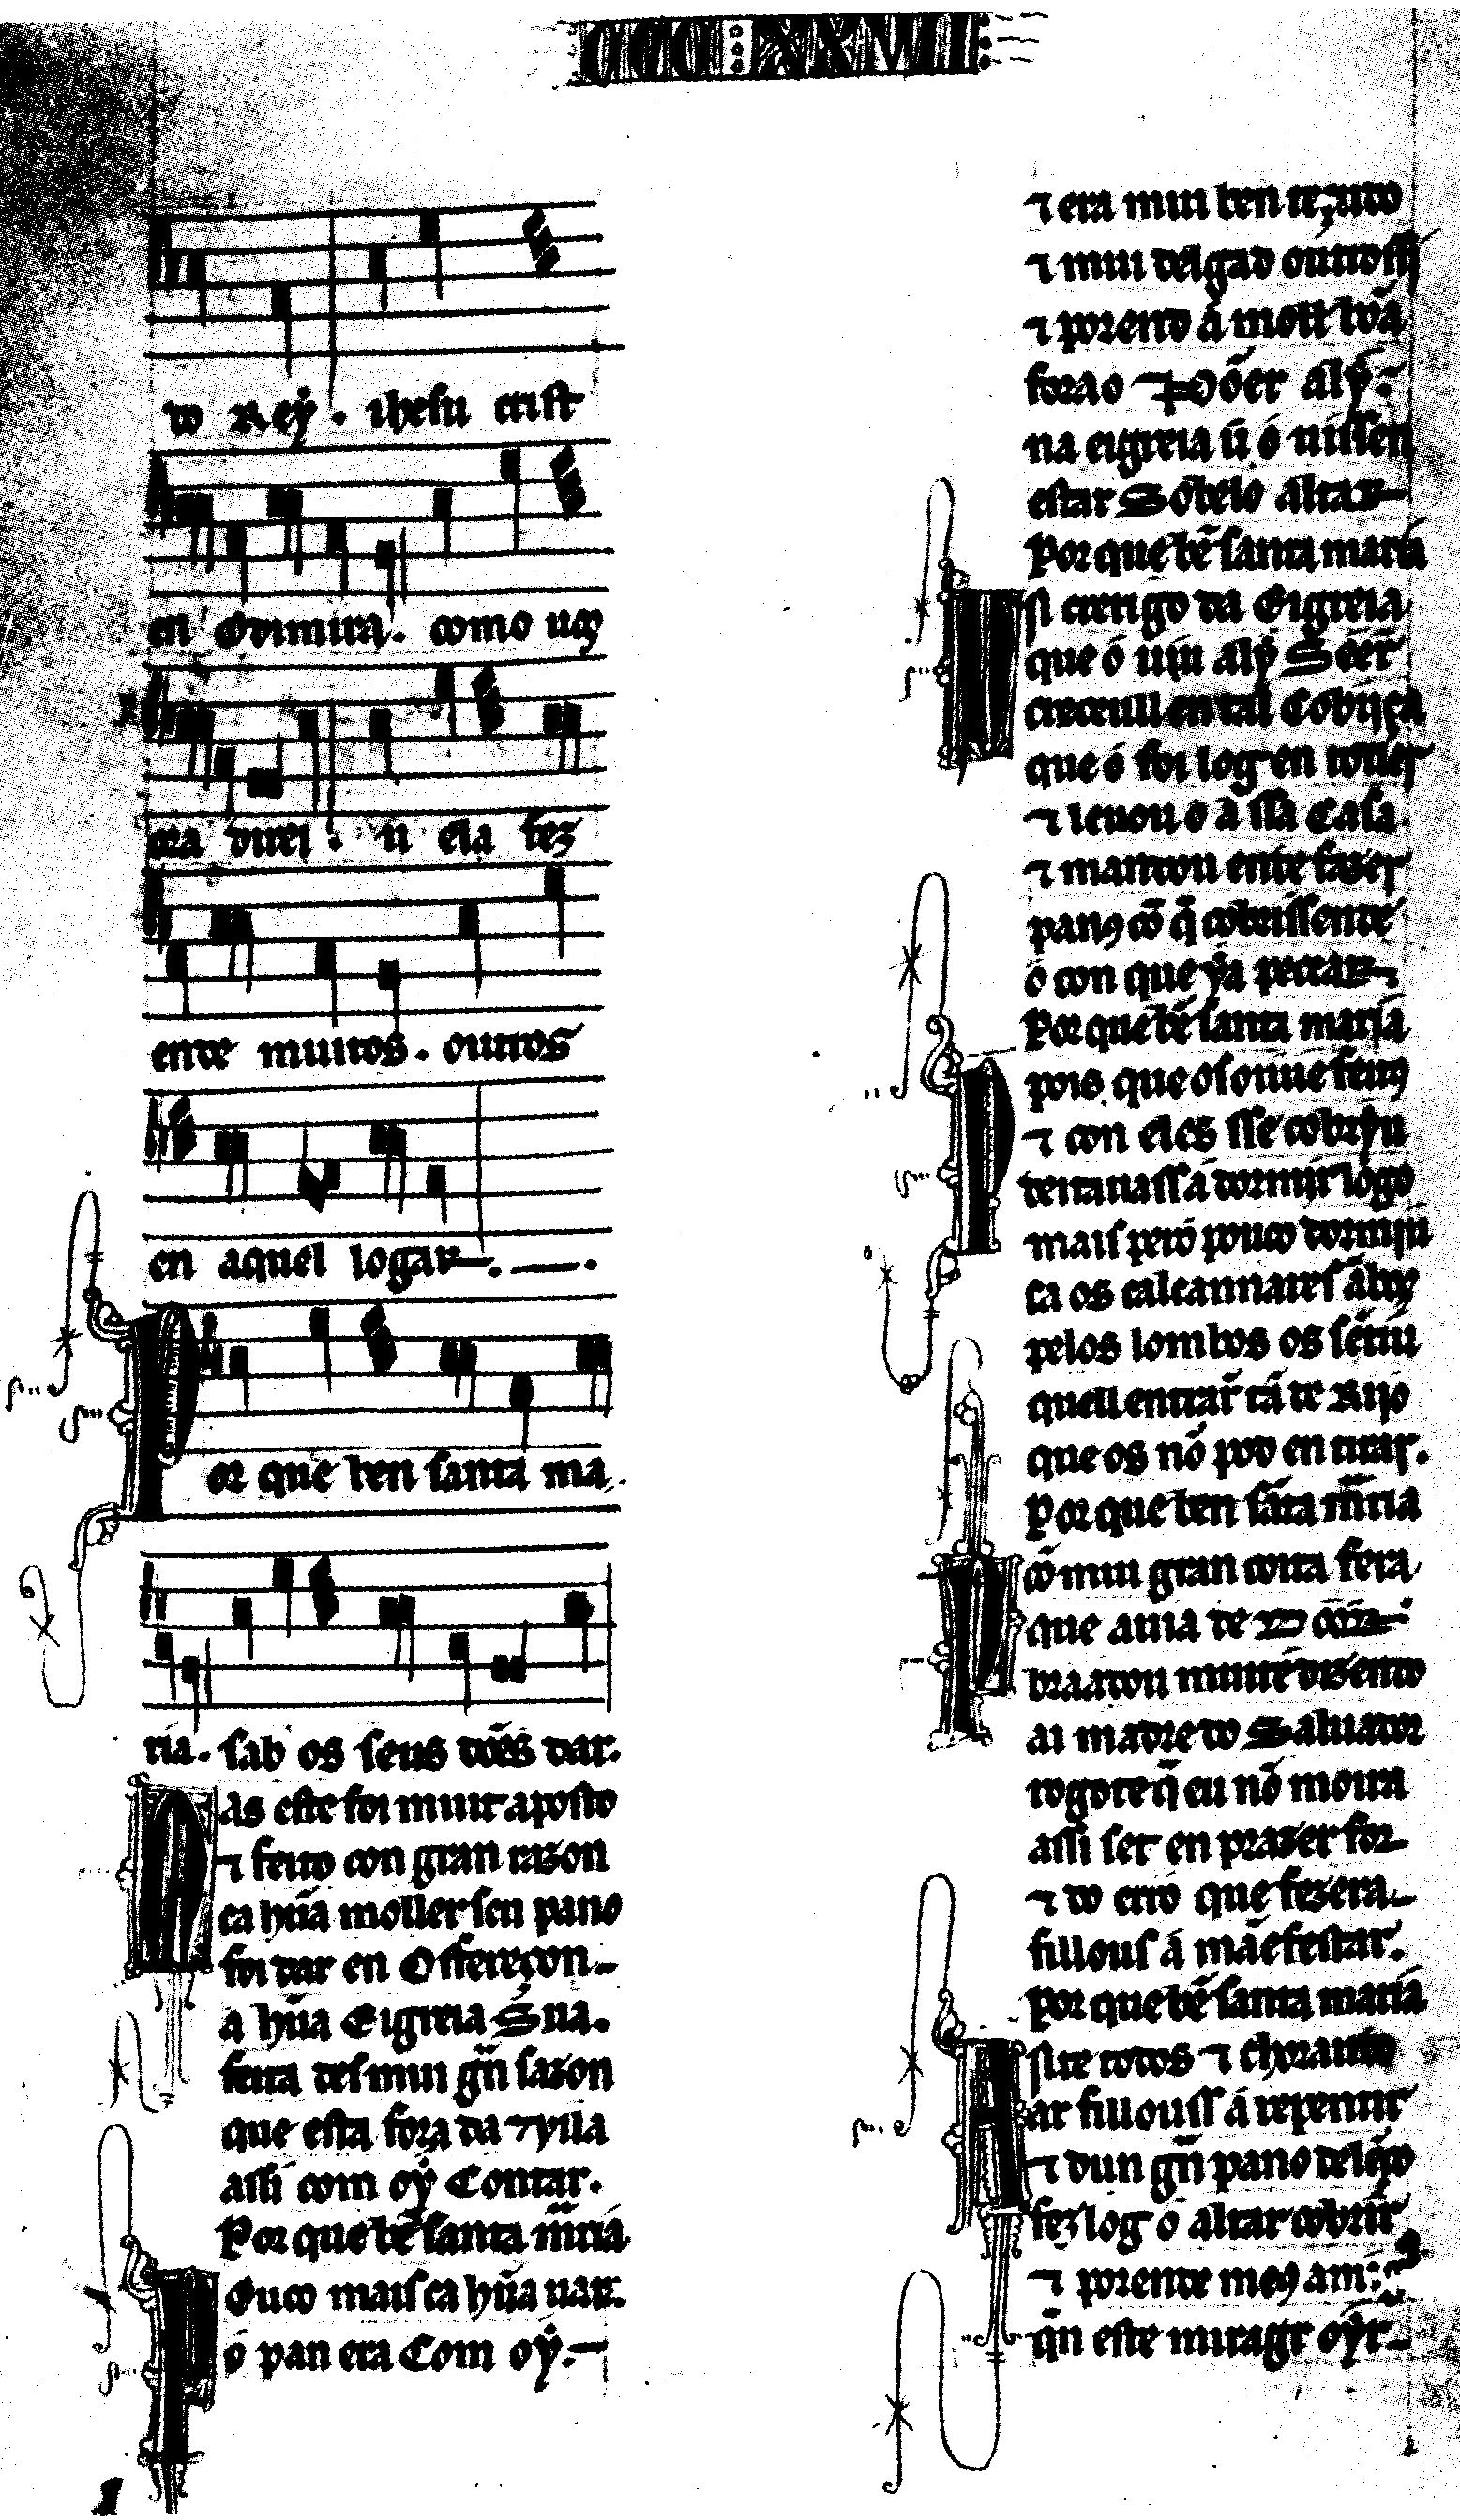 CCC XXVIII
to Rey. ihesu crist
en Odimira. como uꝯ
ora direi. ũ ela fez
ente muitos. outros
en aquel logar
Por que ben santa ma
ria. sab os seus dões dar.
Mas este foi muit aposto
⁊ feito con gran razon
ca hũa moller sen pano
foi dar en Offereçon
a hũa Eigreia Sua.
feita des mui gñ sazon
que esta fora da vila
assi com oý Contar.
Por que bẽ santa mͣria
Ouco mais ca hũa uar.
o pan era Com oý.
⁊ era mui ben teçudo
⁊ mui delgad outrossi
⁊ porend a moll bõa
forao põer alý
na eigreia ũ o uissen
estar Sobelo altar
Por que bẽ santa maria
que o uiu alý Seer
creceull en tal Cobijça
que o foi log en coller
⁊ leuou o a ssa Casa
⁊ mandou ende fazer
panꝯ cõ q̃ cobrissente
o con que ýa peccar
Por que bẽ santa maria
Pois que os ouue feitꝯ
⁊ con eles sse cobryu
deitauass a dormir logo
mais pero pouco dormiu
ca os calcannares ambꝯ
pelos lombos os sentiu
quell entrar tã de Rijo
que os nõ pod en tirar.
Por que ben sãta mͣria
Cõ mui gran coita fera
que auia de Door
braadou muite dizendo
ai madre do Saluador
rogote q̃ eu nõ moira
assi ser en prazer for
⁊ do erro que fezera
fillous a mãefestar.
Por que bẽ santa maria
Ante todos ⁊ chorando
ar fillouss a repentir
⁊ dun gñ pano de lẽço
fez log o altar cobrir
⁊ porende meꝯ am
qñ este miragr oýr